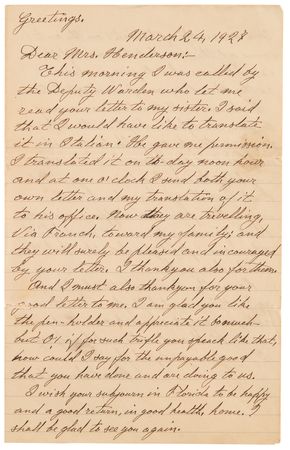 Greetings.
March 24, 1927
Dear Mrs. Henderson:-
This morning I was called by
the Deputy Warden who let me
read your letter to my sister. I said
that I would have like to translate
it in Italian. He gave me permission.
I translated it on to-day noon hour
and at one o'clock I send both your
own letter and my translation of it
to his office. Now they are travelling,
Via French, toward my family; and
they will surely be pleased and incouraged
by your letter. I thank you also for them.
And I must also thank you for your
good letter to me. I am glad you like
the pen-holder and appreciate it so much-
but O! if for such trifle you speak like that,
how could I say for the unpayable good
that you have done and are doing to us.
I wish your subjourn in Florida to be happy
and a good return, in good health, home. I
shall be glad to see you again.